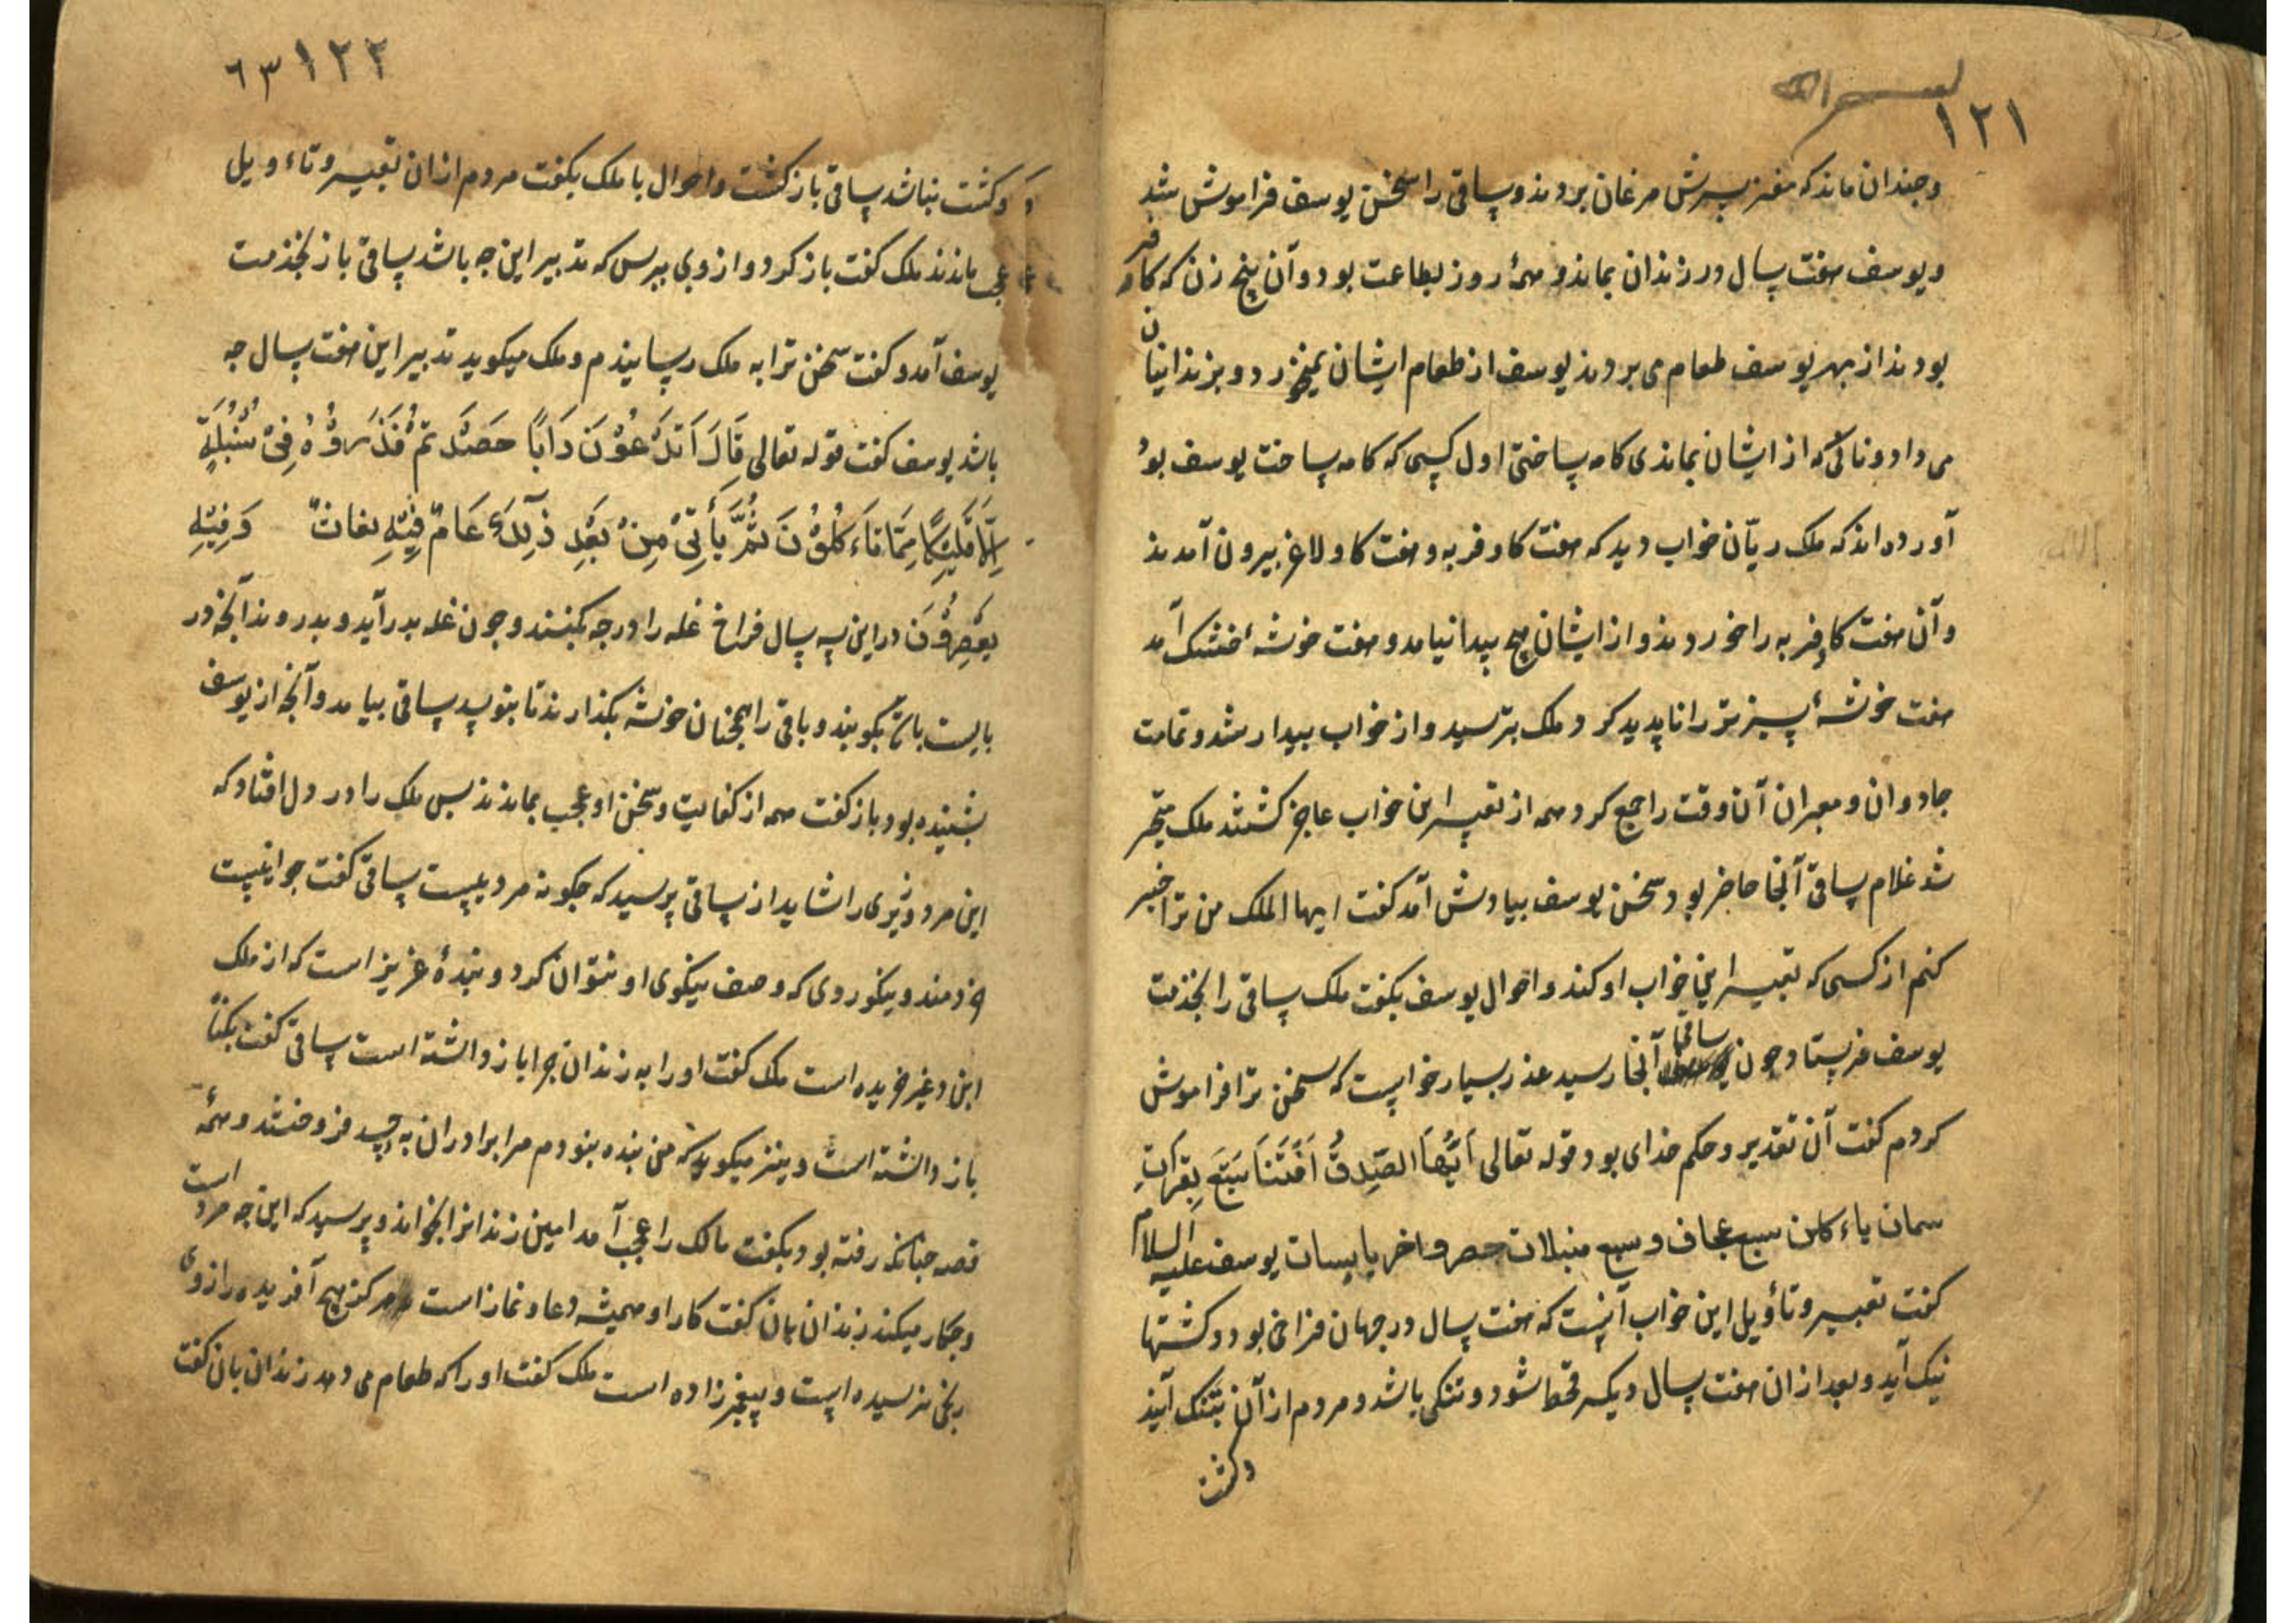 بسم الله
١٢١
وجندان ماند که مغز سرش مرغان بردند و ساقی را سخن یوسف فراموش شد
و یوسف هفت سال در زندان بماند و همهٔ روز بطاعت بود و آن پنج زن که کافر
بودند از بهر یوسف طعام می بردند یوسف از طعام ایشان نمیخورد و بزندانیان
می داد و نانی که از ایشان بماندی کامه ساختی اول کسی که کامه ساخت یوسف بود
آورده اند که ملک ریّان خواب دید که هفت کاو فربه و هفت کاو لاغر بیرون آمدند
و آن هفت کاو فربه را خوردند و از ایشان هیچ پیدا نیامد و هفت خوشهٔ خشک آمد
هفت خوشهٔ سبز تر را ناپدید کرد و ملک بترسید و از خواب بیدار شد و تمامت
جادوان و معبران آن وقت را جمع کرد و همه از تعبیر این خواب عاجز کشتند ملک متحیر
شد غلام ساقی آنجا حاضر بود سخن یوسف بیادش آمد کفت ایها الملک من ترا خبر
کنم از کسی که تعبیر این خواب او کند و احوال یوسف بکفت ملک ساقی را بخدمت
یوسف فرستاد چون ساقی آنجا رسید عذر بسیار خواست که سخن ترا فراموش
کردم کفت آن تقدیر و حکم خدای بود قوله تعالی اَیُّهَا الصِّدِیقُ اَفْتَنَا سَبَعِ بِقَرَاتٍ
سمان یاءکلن سبع عجاف و سبع سنبلات حصر و اخر یابسات یوسف علیه السلام
کفت تعبیر و تأویل این خواب آنست که هفت سال در جهان فراخی بود و کشتها
نیک آید و بعد از ان هفت سال دیکر قحط شود و تنکی باشد و مردم از آن بتنک آیند
وکشت
١٢٢ ٦٣
وکشت نباشد ساقی باز کشت و احوال با ملک بکفت مردم از ان تعبیر و تاءویل
عجب ماندند ملک کفت باز کرد و از وی ببرس که تدبیر این جه باشد ساقی باز بخدمت
یوسف آمد و کفت سخن ترا به ملک رسانیدم و ملک میکوید تدبیر این هفت سال جه
باشد یوسف کفت قوله تعالی قَالَ اَتَزْرَعُوْنَ دَابًا حَصَدْتُمْ فَذَرُوْهُ فِیْ سُنْبُلَةٍ
اِلَّا قَلِیْلًا مِمَّا تَاءَکُلُوْنَ ثُمَّ یَأتِیْ مِنْ بَعْدِ ذٰلِکَ عَامٌ فِیْهِ یغاث وَفِیْهِ
یَعْصِرُوْنَ در این سه سال فراخ غله را درجه بکنند و جون غله بدر آید و بدروند آنجه در
بایست باشد بکوبند و باقی را همجنان خوشه بکذارند تا بنوسد ساقی بیامد و آنجه از یوسف
بشنیده بود باز کفت همه از کفایت و سخن او عجب بماندند بس ملک را در دل افتاد که
این مرد وزیری را شاید از ساقی پرسید که چکونه مردیست ساقی کفت جوانیست
خردمند و نیکو روی که وصف نیکوی او نتوان کرد و بندهٔ عزیز است که از ملک
ابن دغیر خریده است ملک کفت او را به زندان چرا باز داشته است ساقی کفت بکناه
باز داشته است و نیز میکوید که من بنده نبودم مرا برادران به حسد فروختند و همهٔ
قصه جنانکه رفته بود بکفت مالک را عجب آمد امین زندانرا بخواند و پرسید که این جه مرد است
و جکار میکند زندان بان کفت کار او همیشه دعا و نماز است هرکز هیچ آفریده را از وی
رنجی نرسیده است و پیغمبر زاده است ملک کفت او را که طعام می دهد زندان بان کفت